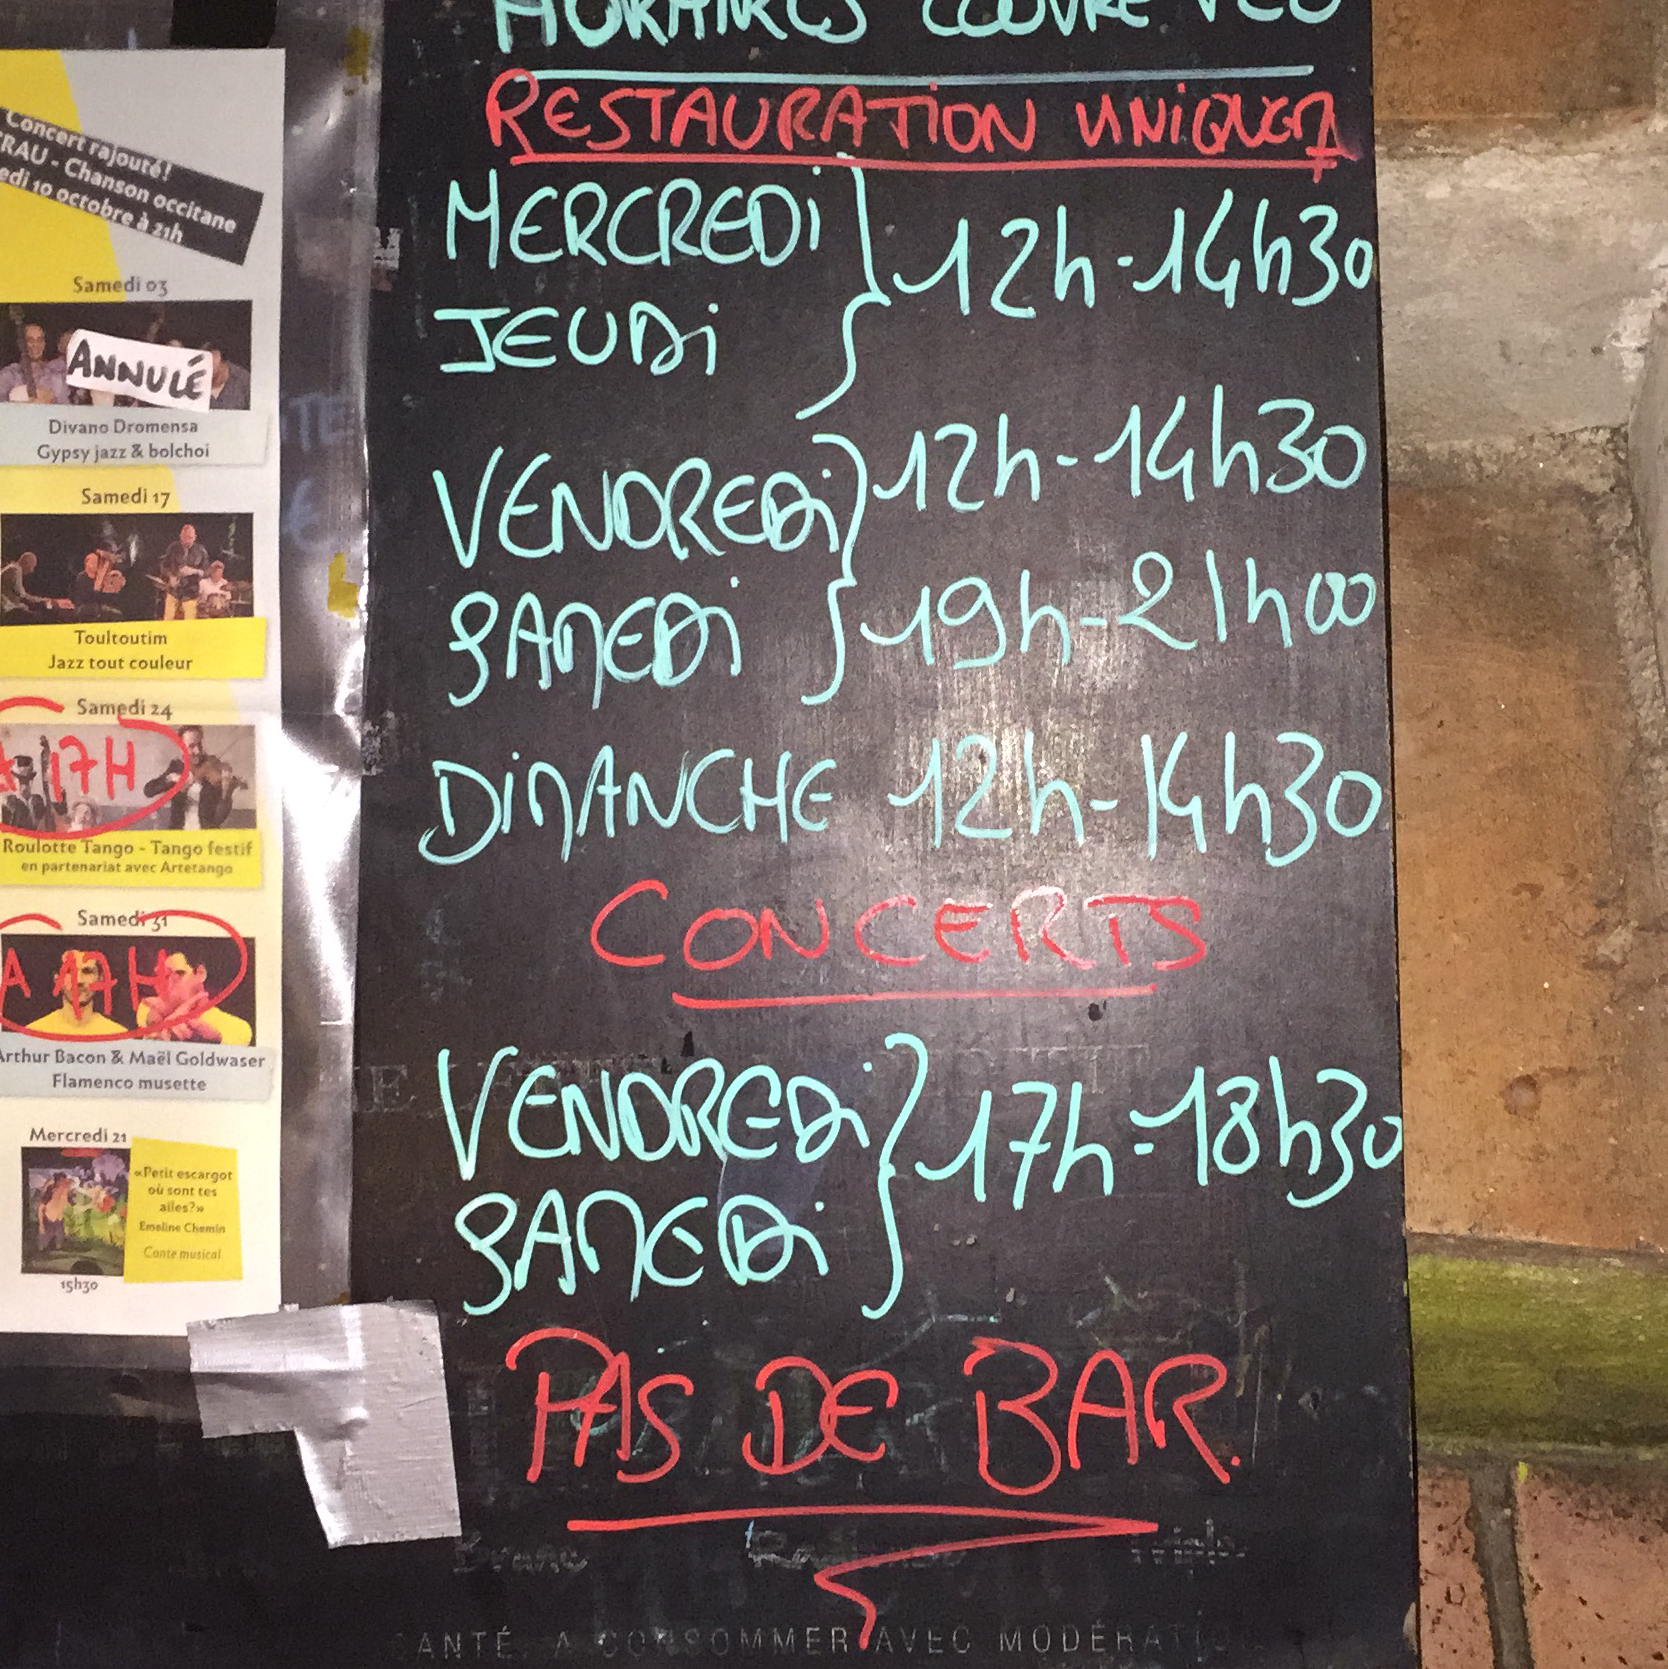 Concert rajouté!
RAU - Chanson occitane
edi 10 octobre à 21h
Samedi 03
ANNULÉ
Divano Dromensa
Gypsy jazz & bolchoi
Samedi 17
Toultoutim
Jazz tout couleur
Samedi 24
A 17H
Roulotte Tango - Tango festif
en partenariat avec Artetango
Samedi 31
A 17H
Arthur Bacon & Maël Goldwaser
Flamenco musette
Mercredi 21
«Petit escargot
où sont tes
ailes?»
Emeline Chemin
Conte musical
15h30
HORAIRES COUVRE FEU
RESTAURATION UNIQUEMT
MERCREDI
JEUDI
12h-14h30
VENDREDI
SAMEDI
12h-14h30
19h-21h00
DIMANCHE 12h-14h30
CONCERTS
VENDREDI
SAMEDI
17h-18h30
PAS DE BAR.
ANTÉ, A CONSOMMER AVEC MODÉRATI